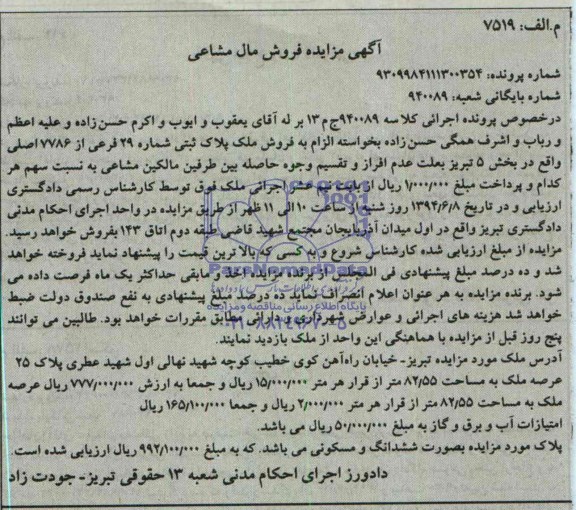 م.الف: ۷۵۱۹
آگهی مزایده فروش مال مشاعی
شماره پرونده: ۹۳۰۹۹۸۴۱۱۱۳۰۰۳۵۴
شماره بایگانی شعبه: ۹۴۰۰۸۹
درخصوص پرونده اجرائی کلاسه ۹۴۰۰۸۹ج م ۱۳ بر له آقای یعقوب و ایوب و اکرم حسن زاده و علیه اعظم
و رباب و اشرف همگی حسن زاده بخواسته الزام به فروش ملک پلاک ثبتی شماره ۲۹ فرعی از ۷۷۸۶ اصلی
واقع در بخش ۵ تبریز بعلت عدم افراز و تقسیم وجوه حاصله بین طرفین مالکین مشاعی به نسبت سهم هر
کدام و پرداخت مبلغ ۱/۰۰۰/۰۰۰ ریال از بابت نیم عشر اجرائی ملک فوق توسط کارشناس رسمی دادگستری
ارزیابی و در تاریخ ۱۳۹۴/۶/۸ روز شنبه از ساعت ۱۰ الی ۱۱ ظهر از طریق مزایده در واحد اجرای احکام مدنی
دادگستری تبریز واقع در اول میدان آذربایجان مجتمع شهید قاضی طبقه دوم اتاق ۱۴۳ بفروش خواهد رسید.
مزایده از مبلغ ارزیابی شده کارشناس شروع و به کسی که بالا ترین قیمت را پیشنهاد نماید فروخته خواهد
شد و ده درصد مبلغ پیشنهادی فی المجلس از برنده مزایده اخذ و مابقی حداکثر یک ماه فرصت داده می
شود. برنده مزایده به هر عنوان اعلام انصراف نماید ده درصد مبلغ پیشنهادی به نفع صندوق دولت ضبط
خواهد شد هزینه های اجرائی و عوارض شهرداری و دارائی مطابق مقررات خواهد بود. طالبین می توانند
پنج روز قبل از مزایده با هماهنگی این واحد از ملک بازدید نمایند.
آدرس ملک مورد مزایده تبریز- خیابان راه آهن کوی خطیب کوچه شهید نهالی اول شهید عطری پلاک ۲۵
عرصه ملک به مساحت ۸۲/۵۵ متر از قرار هر متر ۱۵/۰۰۰/۰۰۰ ریال و جمعا به ارزش ۷۷۷/۰۰۰/۰۰۰ ریال عرصه
ملک به مساحت ۸۲/۵۵ متر از قرار هر متر ۲/۰۰۰/۰۰۰ ریال و جمعا ۱۶۵/۱۰۰/۰۰۰ ریال
امتیازات آب و برق و گاز به مبلغ ۵۰/۰۰۰/۰۰۰ ریال می باشد.
پلاک مورد مزایده بصورت ششدانگ و مسکونی می باشد. که به مبلغ ۹۹۲/۱۰۰/۰۰۰ ریال ارزیابی شده است.
دادورز اجرای احکام مدنی شعبه ۱۳ حقوقی تبریز- جودت زاد